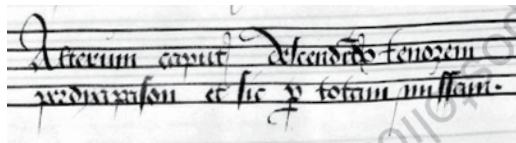 Alterum caput descendendo tenorem
perdyapason et sic p totam missam.